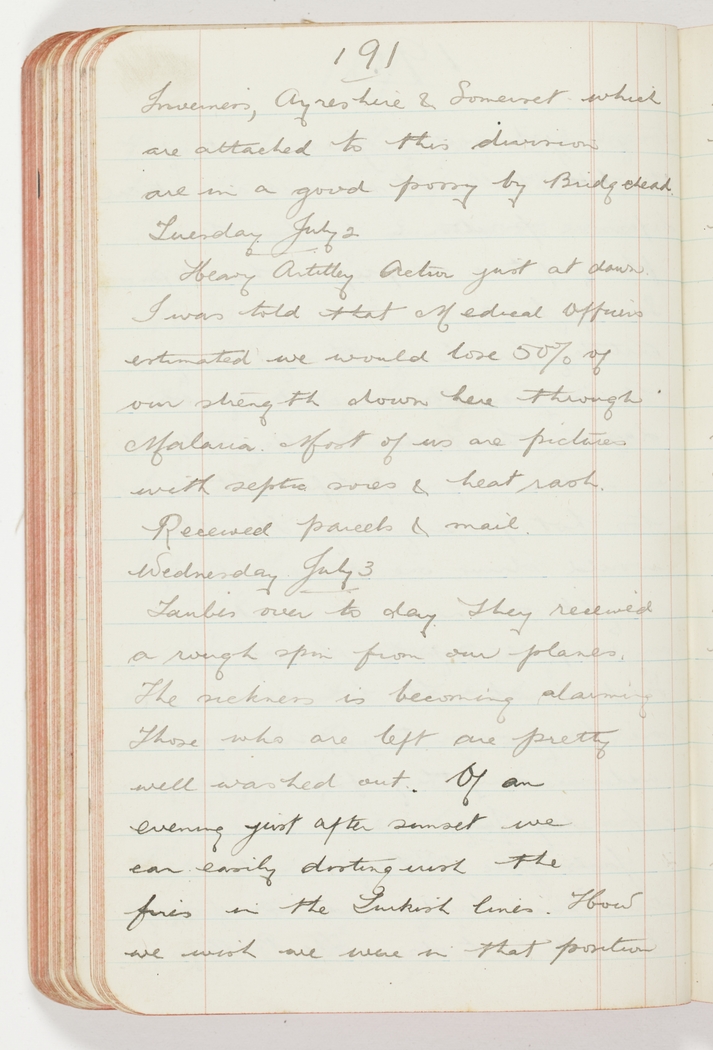 191
Inverness, Ayreshire & Somerset which
are attached to this division
are in a good possy by Bridgehead.
Tuesday July 2
Heavy Artilley Action just at dawn.
I was told that Medical Officers
estimated we would lose 50% of
our strength down here through
Malaria. Most of us are pictures
with septic sores & heat rash.
Received parcels & mail.
Wednesday July 3
Taubes over to day. They received
a rough spin from our planes.
The sickness is becoming alarming
Those who are left are pretty
well washed out. Of an
evening just after sunset we
can easily distinguish the
fires in the Turkish lines. How
we wish we were in that position